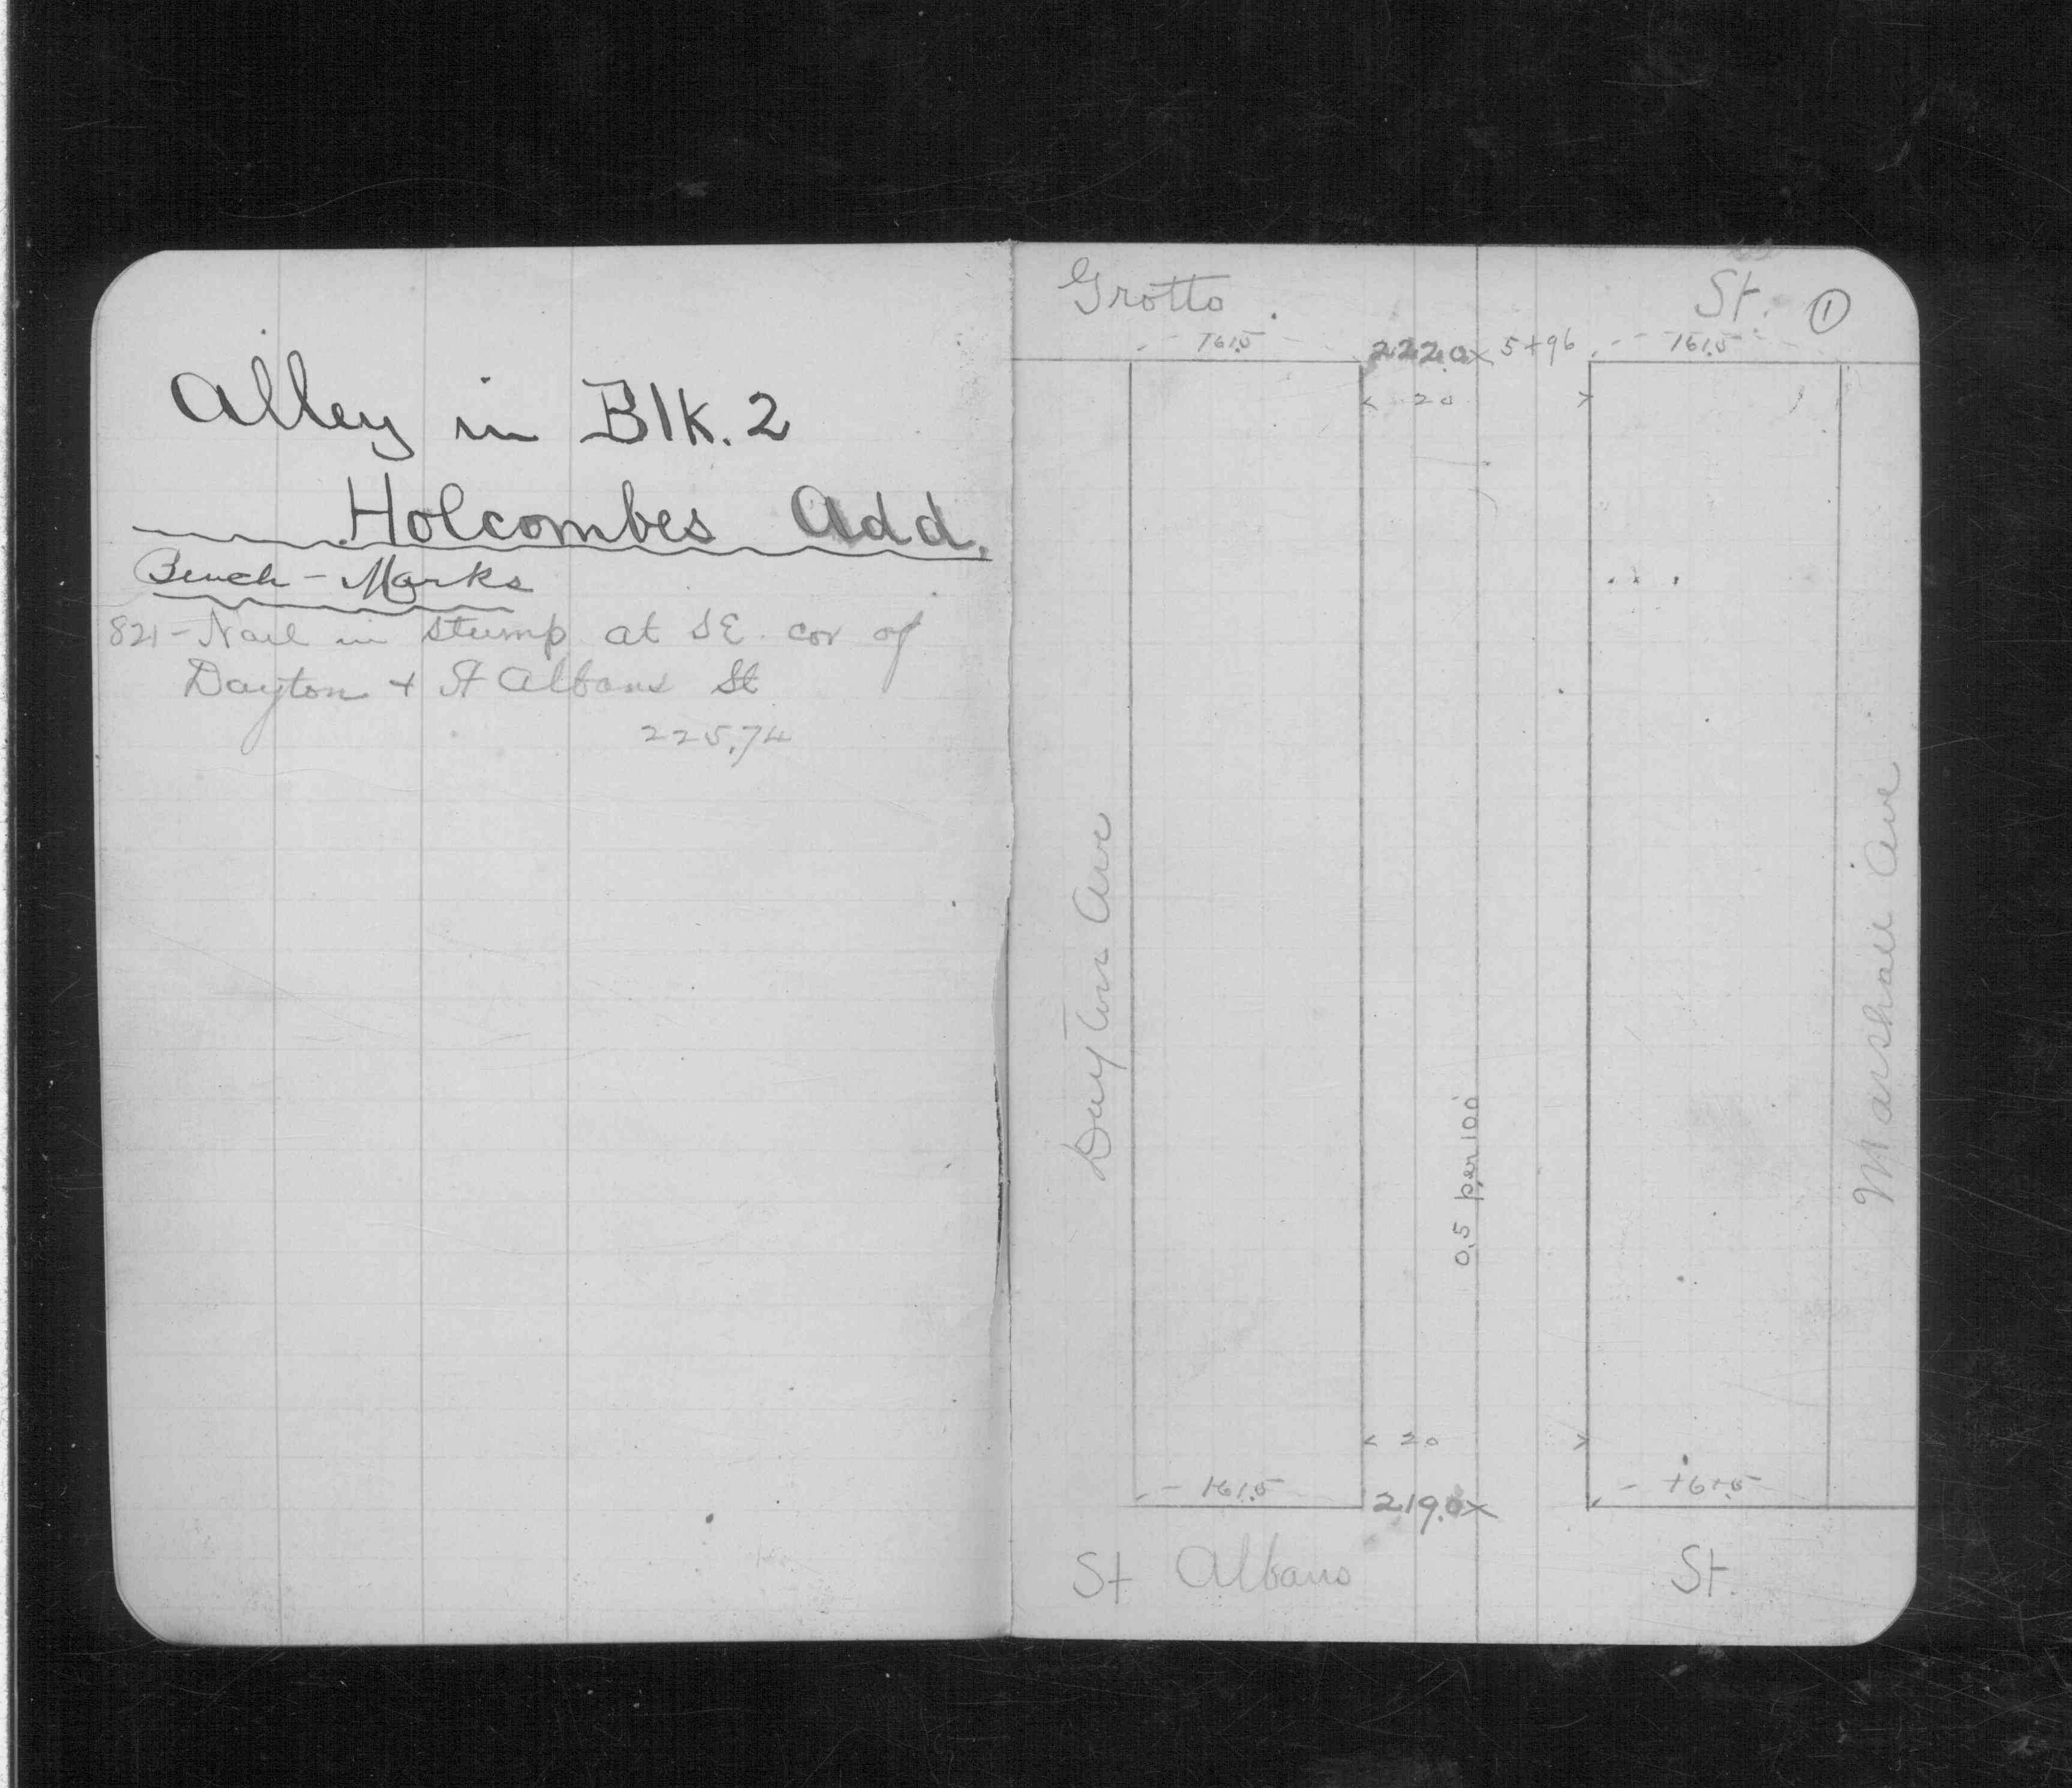 Alley in Blk. 2
Holcombes Add.
Bench-Marks
821-Nail in stump at SE. cor of
Dayton + St Albans St
225.74
Grotto St. 1
161.5 222.0x 5+96 161.5
20
Dayton Ave
0.5 per 100
Marshall Ave
20
161.5 219.0x 161.5
St Albans St.